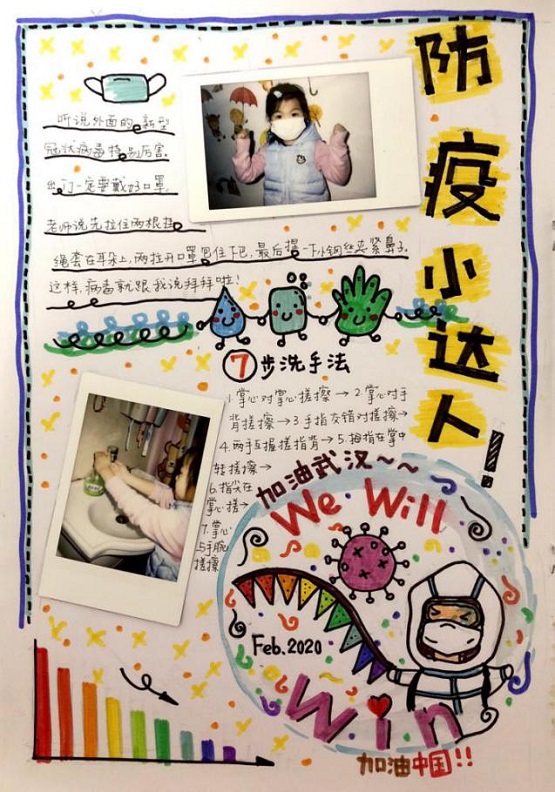 防疫小达人!
听说外面的新型
冠状病毒特别厉害,
出门一定要戴好口罩,
老师说先拉住两根挂
绳套在耳朵上,两拉开口罩包住下巴,最后捏一下小钢丝夹紧鼻子,
这样,病毒就跟我说拜拜啦!
7步洗手法
1.掌心对掌心搓擦→2.掌心对手
背搓擦→3.手指交错对搓擦→
4.两手互握搓指背→5.拇指在掌中
转搓擦→
6.指尖在
掌心搓→
7.掌心
与手腕
搓擦
加油武汉~~
We Will
Feb.2020
Win
加油中国!!